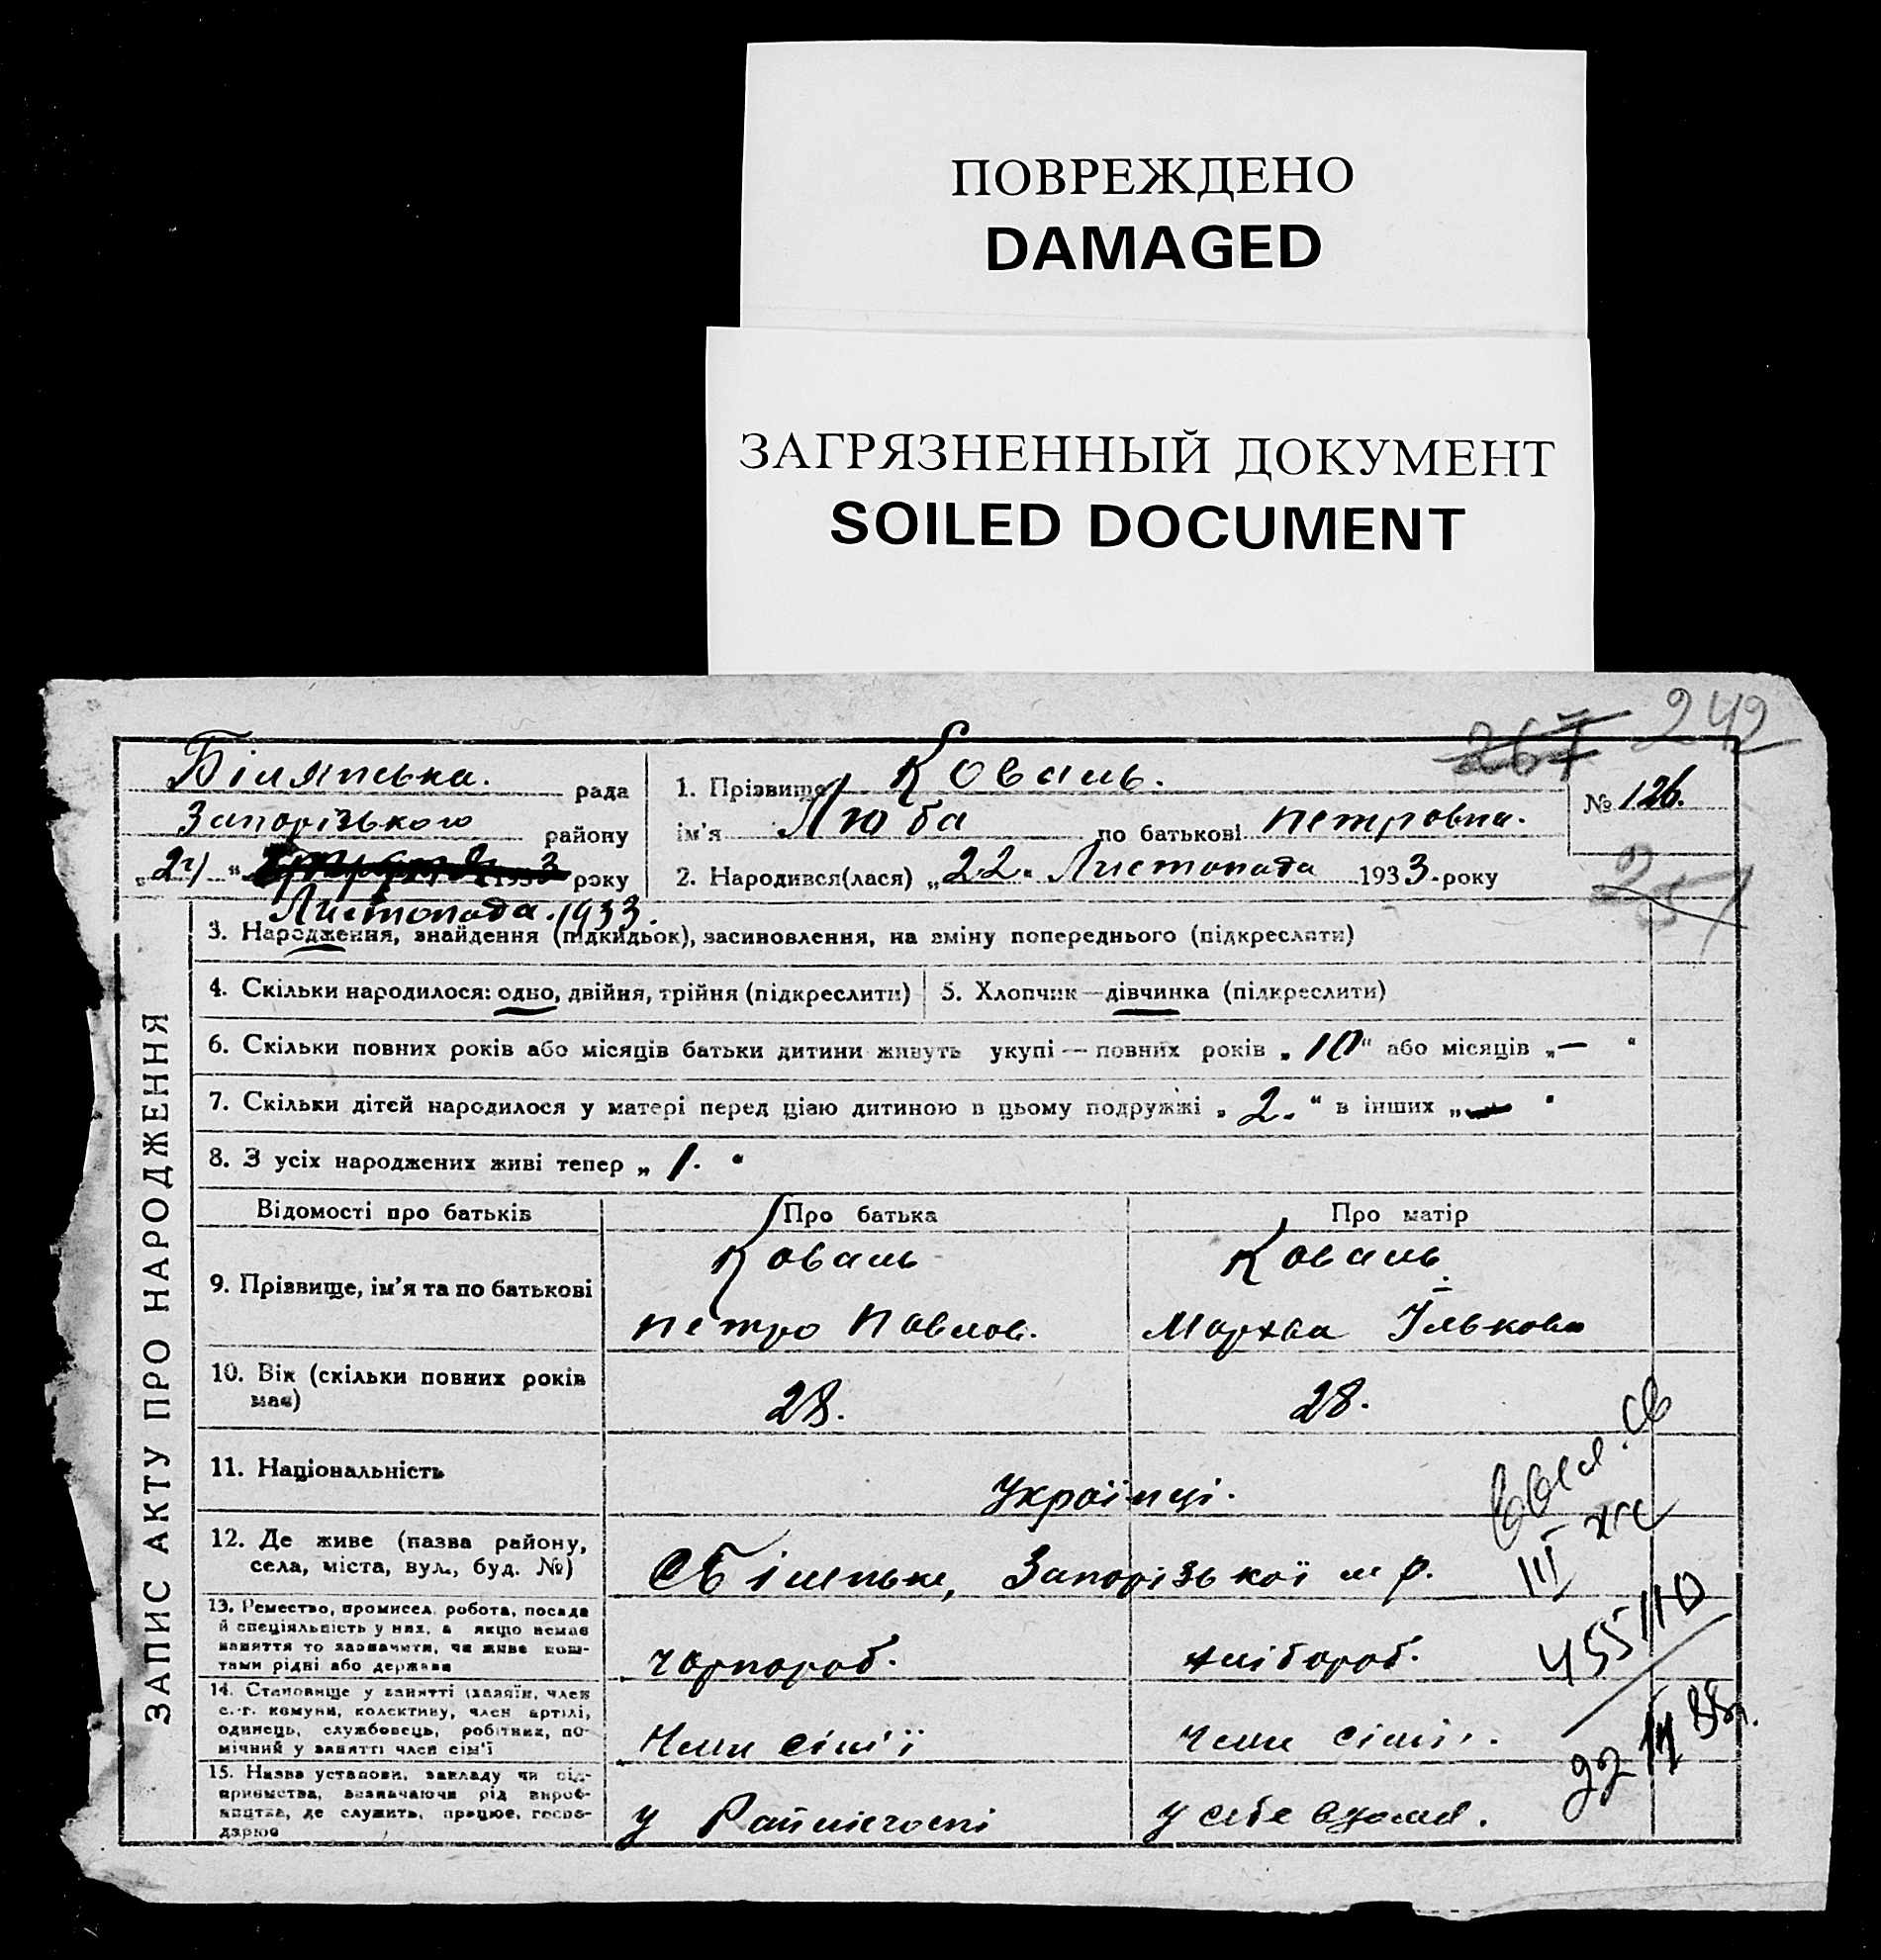 ПОВРЕЖДЕНО
DAMAGED
ЗАГРЯЗНЕННЫЙ ДОКУМЕНТ
SOILED DOCUMENT
267 242
рада
Запорізького району
1933 року
Листопада. 1933.
1. Прізвище Коваль.
ім'я Люба по батькові петровна.
2. Народився(лася) „22" Листопада 1933 року
№ 126.
257
ЗАПИС АКТУ ПРО НАРОДЖЕННЯ
3. Народження, знайдення (підкидьок), засиновлення, на зміну попереднього (підкреслити)
4. Скільки народилося: одно, двійня, трійня (підкреслити)
5. Хлопчик—дівчинка (підкреслити)
6. Скільки повних років або місяців батьки дитини живуть укупі — повних років „10" або місяців „—"
7. Скільки дітей народилося у матері перед цією дитиною в цьому подружжі „2." в інших „—"
8. З усіх народжених живі тепер „1."
Відомості про батьків Про батька Про матір
9. Прізвище, ім'я та по батькові
Коваль Коваль
петро Павлов. Мархва Ількова
10. Вік (скільки повних років має)
28. 28.
11. Національність
Українці.
12. Де живе (назва району,
села, міста, вул., буд. №)
Запорізької м р.
13. Ремество, промисел, робота, посада
й спеціяльність у них, а якщо немає
заняття то зазначити, чи живе кош-
тами рідні або держави
чорнороб. хлібороб.
14. Становище у занятті (хазяїн, член
с.-г. комуни, колективу, член артілі,
одинець, службовець, робітник, по-
мічний у занятті член сім'ї
Член сім'ї член сімї.
15. Назва установи, закладу чи під-
приємства, зазначаючи рід вироб-
ництва, де служить, працює, госпо-
дарює
у у себе вдома.
455110